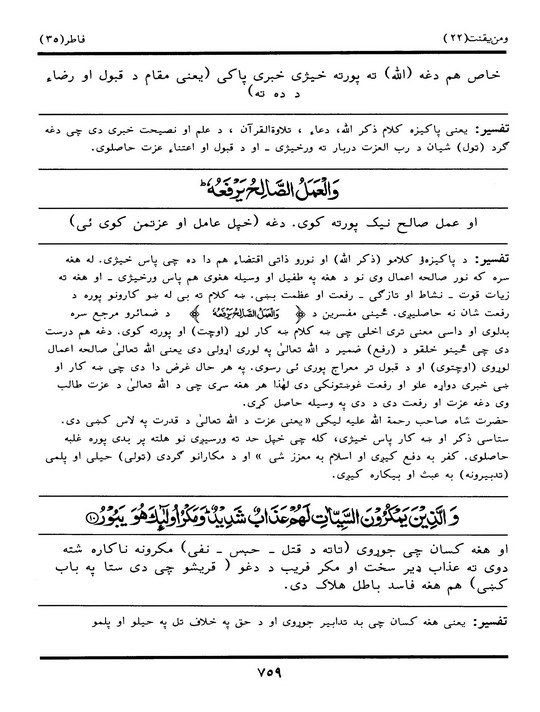 ومن يقنت (٢٢) فاطر (٣٥)
خاص هم دغه (الله) ته پورته خيژی خبری پاکی (يعنی مقام د قبول او رضاء
د ده ته)
تفسير: يعنی پاکيزه کلام ذکر الله، دعاء ، تلاوةالقرآن ، د علم او نصيحت خبری دی چی دغه
گرد (تول) شيان د رب العزت دربار ته ورخيژی ـ او د قبول او اعتناء عزت حاصلوی.
وَالْعَمَلُ الصَّالِحُ يَرْفَعُهٗ ؕ
او عمل صالح نيک پورته کوی. دغه (خپل عامل او عزتمن کوی ئی)
تفسير: د پاکيزؤ کلامو (ذکر الله) او نورو ذاتی اقتضاء هم دا ده چی پاس خيژی. له هغه
سره که نور صالحه اعمال وی نو د هغه په طفيل او وسيله هغوی هم پاس ورخيژی ـ او هغه ته
زيات قوت ـ نشاط او تازگی ـ رفعت او عظمت بښی. ښه کلام ته بی له ښو کارونو پوره د
رفعت شان نه حاصليږی. ځينی مفسرين د ﴿ وَالْعَمَلُ الصَّالِحُ يَرْفَعُهٗ ﴾ د ضمائرو مرجع سره
بدلوی او داسی معنی تری اخلی چی ښه کلام ښه کار لوړ (اوچت) او پورته کوی. دغه هم درست
دی چی ځينو خلقو د (رفع) ضمير د الله تعالیٰ په لوری اړولی دی يعنی الله تعالیٰ صالحه اعمال
لوړوی (اوچتوی) او د قبول تر معراج پوری ئی رسوی. په هر حال غرض دا دی چی ښه کار او
ښی خبری دواړه علو او رفعت غوښتونکی دی لهٰذا هر هغه سړی چی د الله تعالیٰ د عزت طالب
وی دغه عزت او رفعت دی د دی په وسيله حاصل کړی.
حضرت شاه صاحب رحمة الله عليه ليکی «يعنی عزت د الله تعالیٰ د قدرت په لاس کښی دی.
ستاسی ذکر او ښه کار پاس خيژی، کله چی خپل حد ته ورسيږی نو هلته پر بدی پوره غلبه
حاصلوی. کفر به دفع کيږی او اسلام به معزز شی » او د مکارانو گردی (تولی) حيلی او پلمی
(تدبيرونه) به عبث او بيکاره کيږی.
وَ الَّذِيْنَ يَمْكُرُوْنَ السَّيِّاٰتِ لَهُمْ عَذَابٌ شَدِيْدٌ ؕ وَمَكْرُ اُولٰٓئِكَ هُوَ يَبُوْرُ ﴿۱۰﴾
او هغه کسان چی جوړوی (تاته د قتل ـ حبس ـ نفی) مکرونه ناکاره شته
دوی ته عذاب ډير سخت او مکر فريب د دغو ( قريشو چی دی ستا په باب
کښی) هم هغه فاسد باطل هلاک دی.
تفسير: يعنی هغه کسان چی بد تدابير جوړوی او د حق په خلاف تل په حيلو او پلمو
٧٥٩